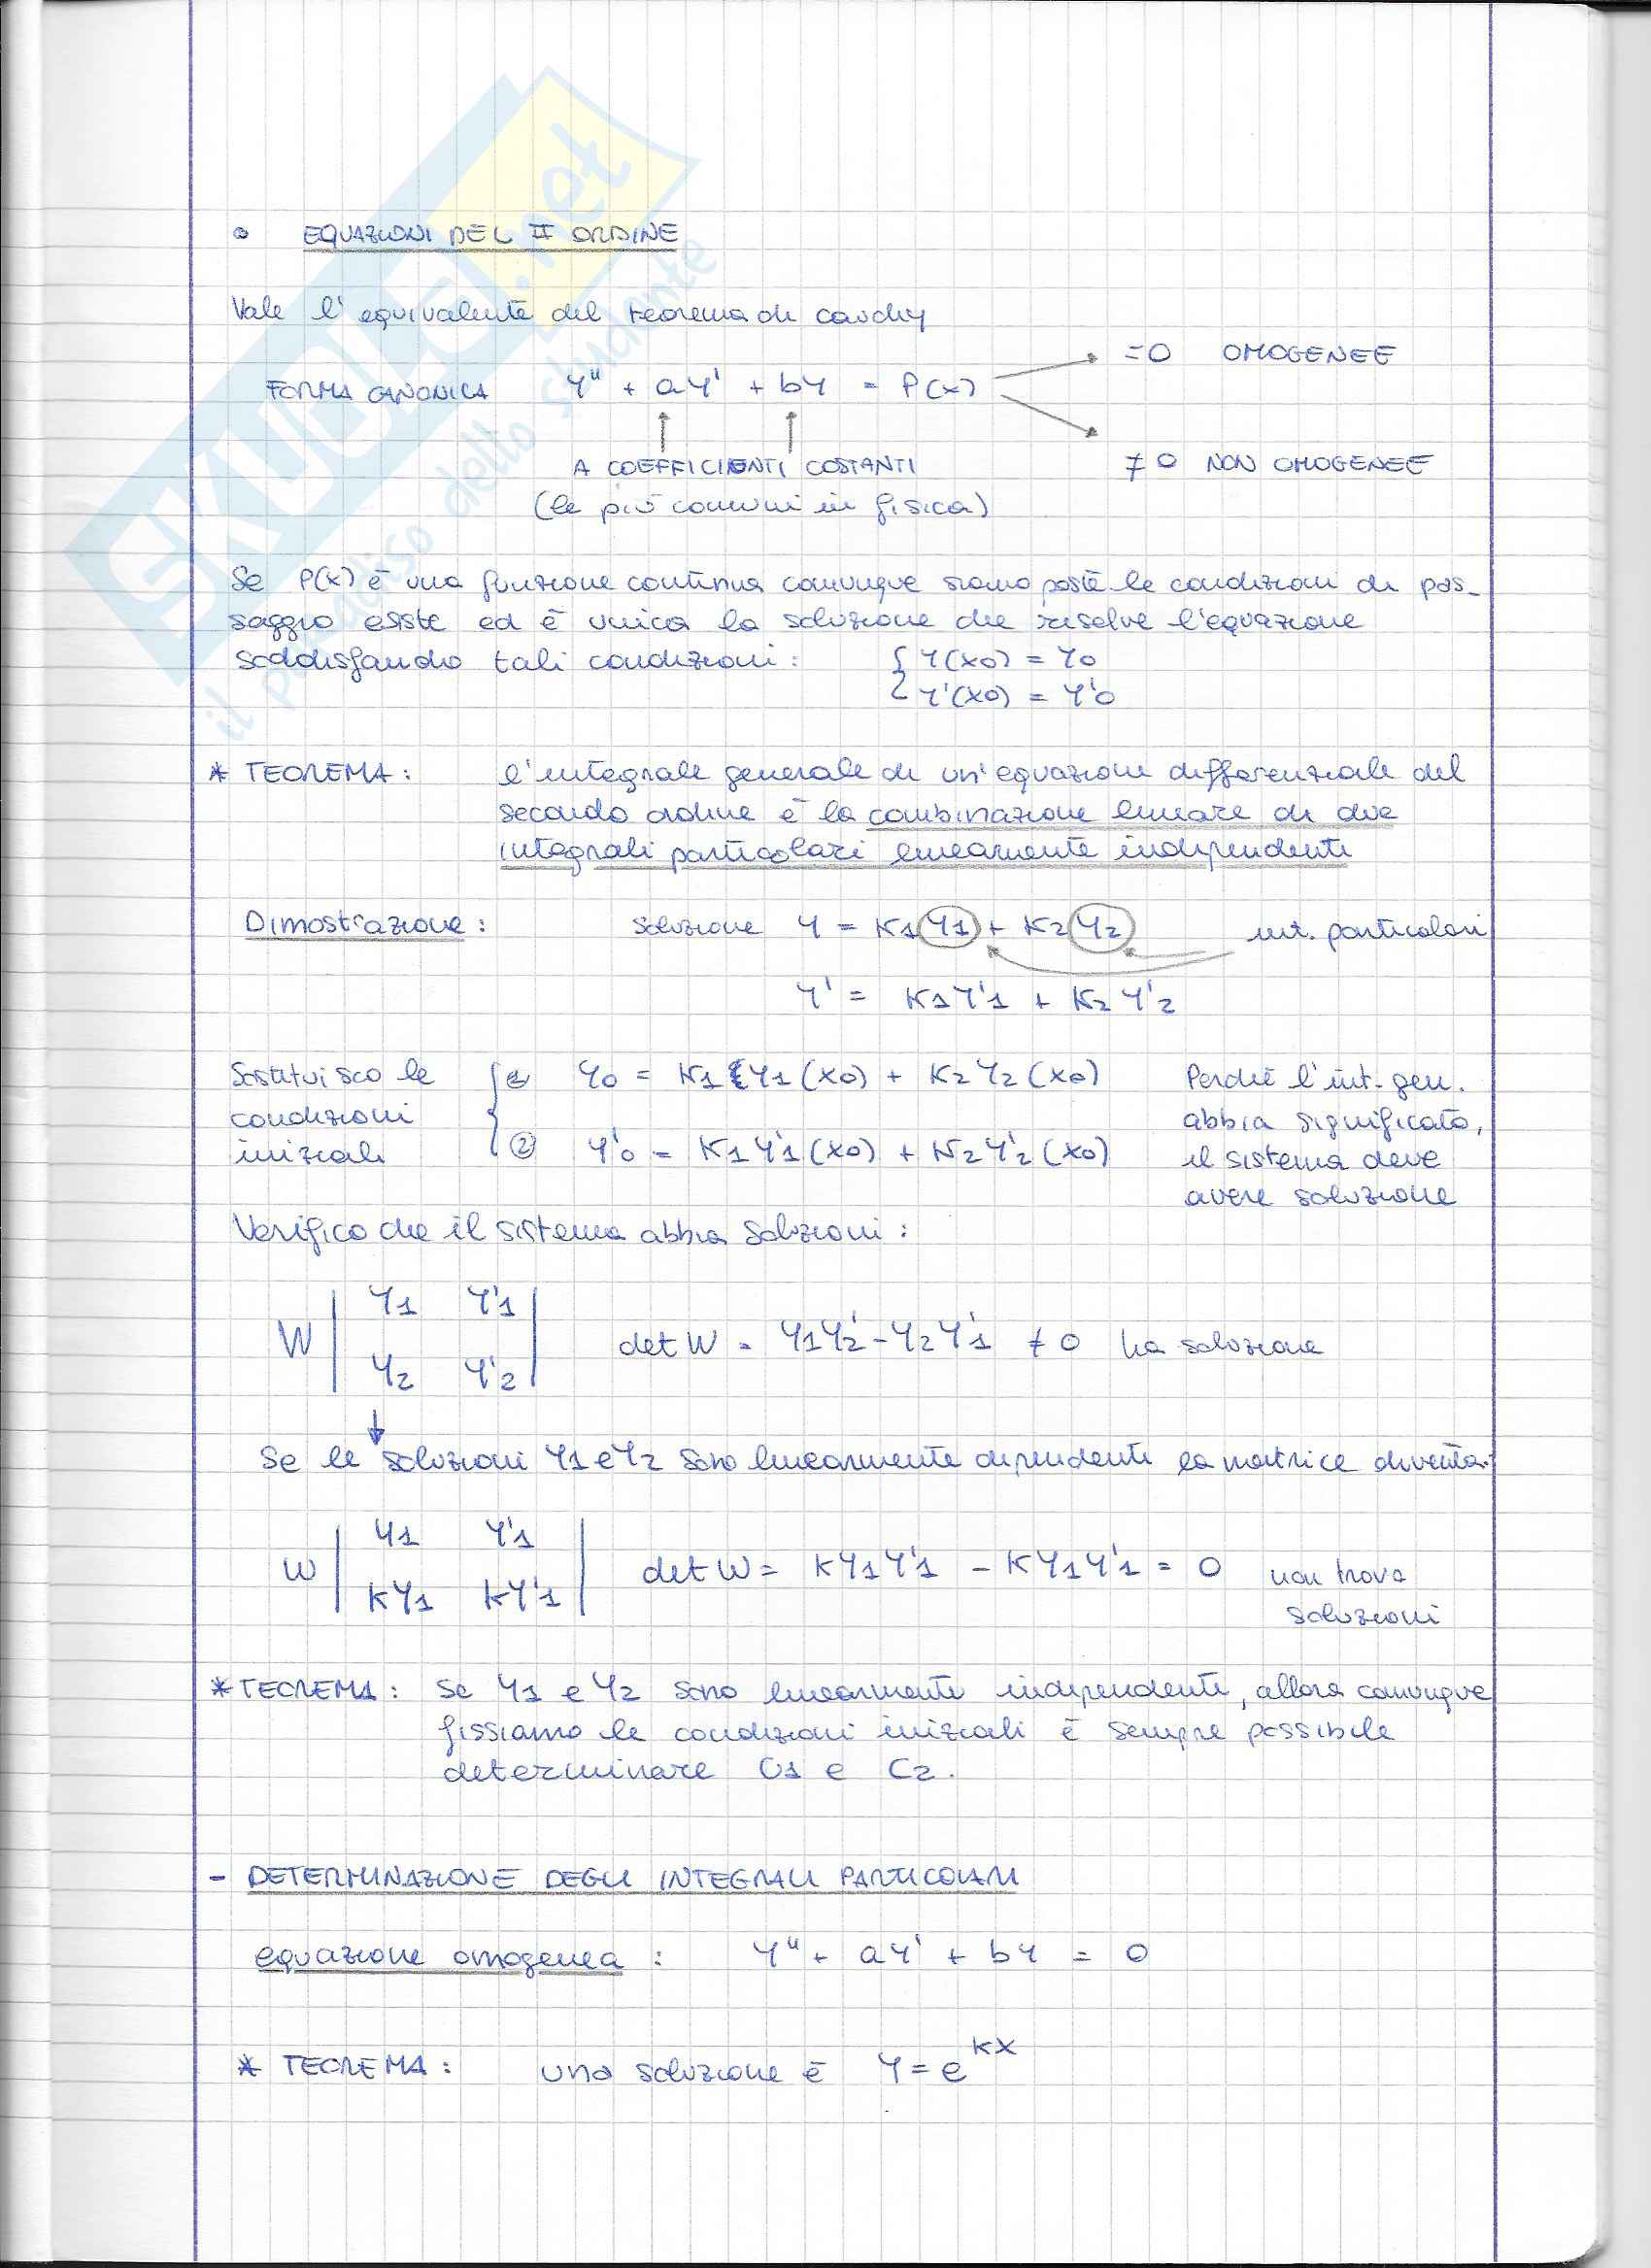 SKUOLA.net
il paradiso dello studente
• EQUAZIONI DEL II ORDINE
Vale l'equivalente del teorema di cauchy
=0 OMOGENEE
FORMA CANONICA y" + ay' + by = P(x)
A COEFFICIENTI COSTANTI
≠ 0 NON OMOGENEE
(le più comuni in fisica)
Se P(x) è una funzione continua comunque siano poste le condizioni di pas-
saggio esiste ed è unica la soluzione che risolve l'equazione
soddisfando tali condizioni: { y(x0) = y0
y'(x0) = y'0
* TEOREMA: l'integrale generale di un'equazione differenziale del
secondo ordine è la combinazione lineare di due
integrali particolari linearmente indipendenti
Dimostrazione: soluzione y = K1 y1 + K2 y2 int. particolari
y' = K1 y'1 + K2 y'2
Sostituisco le { ① y0 = K1 y1(x0) + K2 y2(x0) Perchè l'int. gen.
condizioni abbia significato,
iniziali ② y'0 = K1 y'1(x0) + K2 y'2(x0) il sistema deve
avere soluzione
Verifico che il sistema abbia soluzioni:
y1 y'1
W det W = y1y'2 - y2y'1 ≠ 0 ha soluzione
y2 y'2
↓
Se le soluzioni y1 e y2 sono linearmente dipendenti la matrice diventa:
y1 y'1
W det W = Ky1y'1 - Ky1y'1 = 0 non trova
Ky1 Ky'1 soluzioni
* TEOREMA: se y1 e y2 sono linearmente indipendenti, allora comunque
fissiamo le condizioni iniziali è sempre possibile
determinare C1 e C2.
- DETERMINAZIONE DEGLI INTEGRALI PARTICOLARI
equazione omogenea: y" + ay' + by = 0
* TEOREMA: una soluzione è y = e^Kx